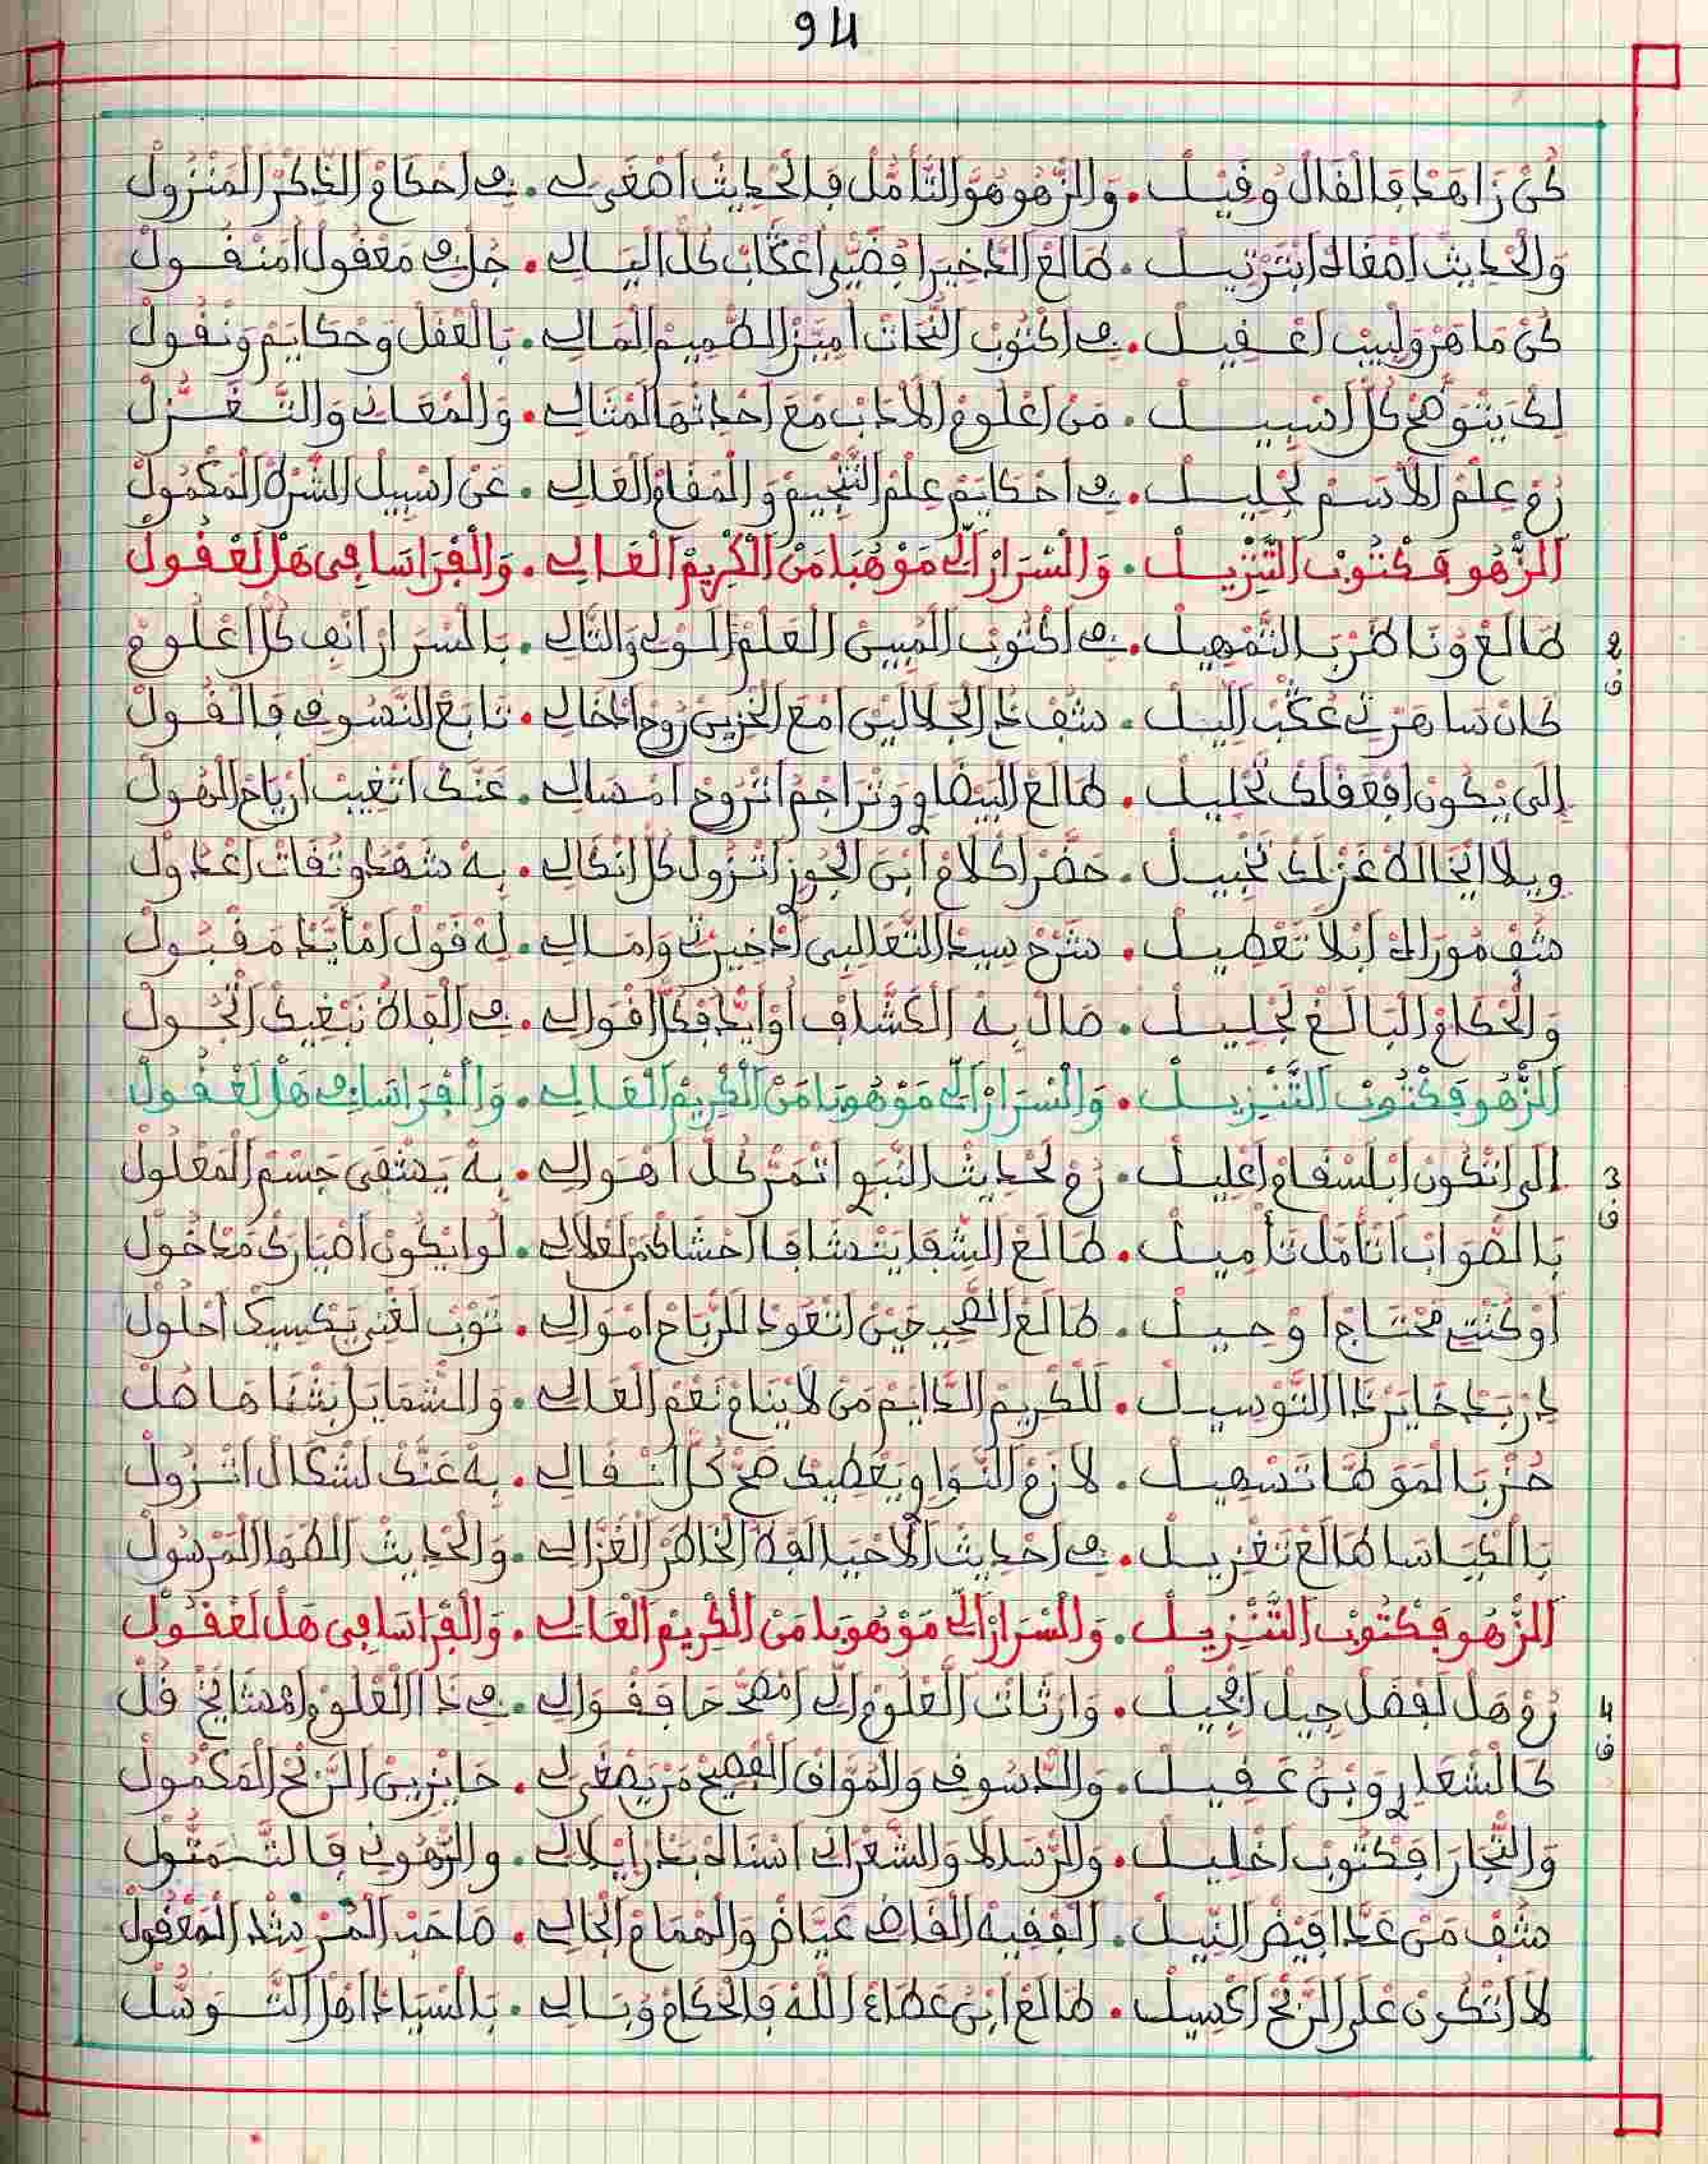 94
كُنْ زَاهَدْ فَالْقَالْ وُقِيلْ . وَالزّْهُو هُوَ التَّأَمُّلْ فَالْحْدِيثْ اصْغَى لِي . فِي احْكَامْ الذِّكْرْ الْمَنْزُولْ
وَالْحْدِيثْ امْقَالُ ابْتَرْتِيلْ . طَالَعْ الدْخِيرَا فْضَيّْ اعْكَابْ كُلّْ الْيَالِي . جُلْ فِي مَعْقُولْ امَنْقُولْ
كُنْ مَاهَرْ وَلْبِيبْ اعْقِيلْ . فِي اكْتُوبْ النُّحَاتْ امَيَّزْ الصّْمِيمْ الْمَالِي . بَالْعْقَلْ وَحْكَايَمْ وَنْقُولْ
لِكْ يَتْوَضَّحْ كُلّْ اسْبِيلْ . مَنْ اعْلُومْ الْأَدَبْ مَعَ احْدِثْهَا الْمْتَالِي . وَالْمْعَانِي وَالتّْغَزُّلْ
رُمْ عِلْمْ الْأَسَمْ لَجْلِيلْ . فِي احْكَايَمْ عِلْمْ التَّنْجِيمْ وَالْمْقَامْ الْعَالِي . عَنْ اسْبِيلْ الشُّرْهْ الْمَكْمُولْ
الزّْهُو فَكْتُوبْ التَّنْزِيلْ . وَالْسْرَارْ الِّي مَوْهُبَا مَنْ الْكْرِيمْ الْعَالِي . وَالْفْرَاسَا فِي هَلْ لَعْقُولْ
2 ق طَالَعْ وُنَاظَرْ بَالتَّمْهِيلْ . فِي اكْتُوبْ الْمْبِينْ الْعَلْمْ الْولِي وَالتَّالِي . بَالْسْرَارْ اتْفِي كُلّْ اعْلُومْ
كَانْ سَاهَرْتِي عْكَبْ اللِّيلْ . شُفْ دَا الْجْلَالَيْنْ امْعَ الْخْزِينْ رُوحْ ادْخَالِي . تَابَعْ التّْصُوفْ فَالْقُولْ
إِلَى يْكُونْ افْعَقْلَكْ تَخْلِيلْ . طَالَعْ الْبَيْضَاوِي وَتْرَاجَمْ اتْرُوحْ امْسَالِي . عَنَّكْ اتْغِيبْ ارْيَاحْ الْهُولْ
وِيلَا الْجَالَةْ غَزْلَكْ تَخْبِيلْ . حَضَّرْ اكْلَامْ ابْنْ الْجُوزْ اتْزُولْ كُلّْ انْكَالِي . بِهْ شَهْدُو ثُقَاتْ اعْدُولْ
شُفْ مُورَالَكْ ابْلَا تَعْطِيلْ . شَرْحْ سِيدْ التَّعَالِبِي ادْخِيرْتِي وَامَالِي . لِهْ قَوْلْ امْأَيَّدْ مَقْبُولْ
وَالْحْكَامْ الْبَالَغْ لَجْلِيلْ . صَالْ بِهْ الْكَشَّافْ أَوْ ايَّدْ فَكُلّْ اقْوَالِي . فِي الْقَاهْ نَبْغِيكْ اتْجُولْ
الزّْهُو فَكْتُوبْ التَّنْزِيلْ . وَالْسْرَارْ الِّي مَوْهُوبَا مَنْ الْكْرِيمْ الْعَالِي . وَالْفْرَاسَا فِي هَلْ لَعْقُولْ
3 ق الَى اتْكُونْ ابْلَسْقَامْ اعْلِيلْ . رُمْ لَحْدِيثْ النّْبَوِي اتْمَرْ كُلّْ اهْوَالِي . بِهْ يَشْفَى جَسْمْ الْمَعْلُولْ
بَالصّْوَابْ اتْأَمَّلْ تَأْمِيلْ . طَالَعْ الشِّفَا يَتْشَافَا احْشَاكْ مَنْ لَعْلَالِي . لُو ايْكُونْ اضْبَارَكْ مَدْخُولْ
أَوْ كُنْتِ مَحْتَاجْ اوْحِيلْ . طَالَعْ الصّْحِيحِينْ اتْعُودْ لَلرّْبَاحْ امْوَالِي . تَوْبْ لَغْنِي يَكْسِيكْ احْلُولْ
لَرْبَعْ دَايَرْ دَا التَّوْسِيلْ . لَلْكْرِيمْ الدَّايَمْ مَنْ لَا يْنَامْ نَعْمْ الْعَالِي . وَالشّْمَايَلْ بَثْنَاهَا صُلْ
حُزْ بَالْمَوَطَّا تَسْهِيلْ . لَازَمْ النّْوَاوِي يَعْطِيكْ صَحّْ كُلّْ انْقَالِي . بِهْ عَنَّكْ لَشْكَالْ اتْزُولْ
بَالْكْيَاسَا طَالَعْ تَغْزِيلْ . فِي احْدِيثْ الْأَحْيَا لَفْدْ الْخَاطَرْ الْغَزَّالِي . وَالْحْدِيثْ الْطَهَ الْمَرْسُولْ
الزّْهُو فَكْتُوبْ التَّنْزِيلْ . وَالْسْرَارْ الِّي مَوْهُوبَا مَنْ الْكْرِيمْ الْعَالِي . وَالْفْرَاسَا فِي هَلْ لَعْقُولْ
4 ق رُمْ هَلْ لَفْضَلْ جِيلْ افْجِيلْ . وَارْثَاتْ الْعْلُومْ الِّي امْصَحّْحَا فَقْوَالِي . فِي دَا الْعْلُومْ امْشَايَخْ قُلْ
كَالشّْعَارِي وَبْنْ عْقِيلْ . وَالدّْسُوقِي وَالْمْوَاقْ الْفْصِيحْ مَنْ يَصْغَى لِي . حَايْزِينْ الرَّبْحْ الْمَكْمُولْ
وَالتِّجَارَا فَكْتُوبْ اخْلِيلْ . وَالرّْسَالَا وَالشَّعْرَانِي اسْنَاهْ بَدْرْ ايْلَالِي . وَالرَّهُونِي فَالتَّمَثُّولْ
شُفْ مَنْ عَدَّا فَيْضْ النِّيلْ . الْفْقِيهْ الْقَاضِي عَيَّاضْ وَالْهْمَامْ الْجَالِي . صَاحَبْ الْمُرْشِدْ الْمَعْقُولْ
لَا اتْكُونْ عَلَى الرَّبْحْ اكْسِيلْ . طَالَعْ ابْنْ عَطَاءْ اللَّهْ فَالْحْكَامْ وُبَالِي . بَالسّْيَادْ اهْلْ التَّوَسُّلْ